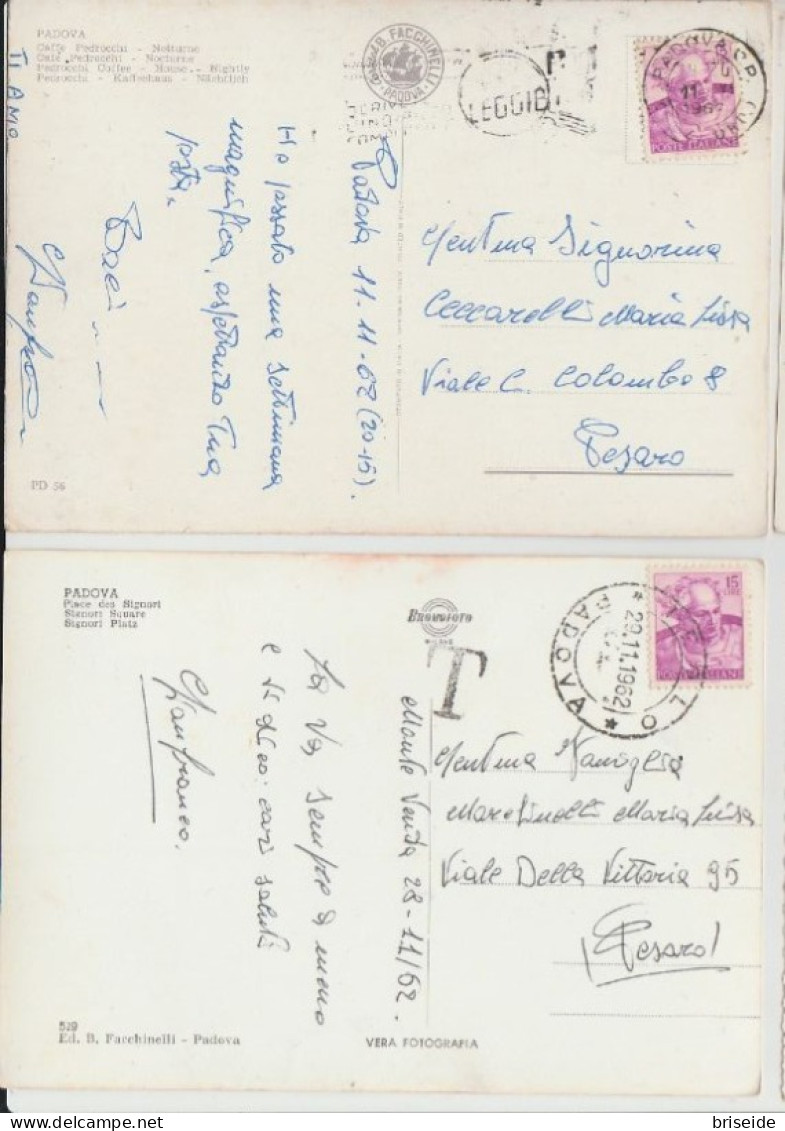 PADOVA
Caffè Pedrocchi - Notturno
Café Pedrocchi - Nocturne
Pedrocchi Coffee - House - Nightly
Pedrocchi - Kaffeehaus - Nächtlich
TI AMO
B. FACCHINELLI
PADOVA
LEGGIBI
PADOVA C.P.
11
POSTE ITALIANE
Padova 11.11.62 (20-15).
Ho passato una settimana
magnifica, aspettando tua
posta.
Baci
Gianfranco
Gentma Signorina
Ceccarelli Maria Luisa
Viale C. Colombo 8
Pesaro
PD 56
PADOVA
Place des Signori
Signori Square
Signori Platz
BROMOFOTO
MILANO
T
15
LIRE
POSTE ITALIANE
PADOVA
29.11.1962
Monte Venda 28-11/62.
La Va sempre di meno
e ti dico: cari saluti
Gianfranco.
Gentma Famiglia
Marcinelli Maria Luisa
Viale Della Vittoria 95
Pesaro
529
Ed. B. Facchinelli - Padova
VERA FOTOGRAFIA
briseide